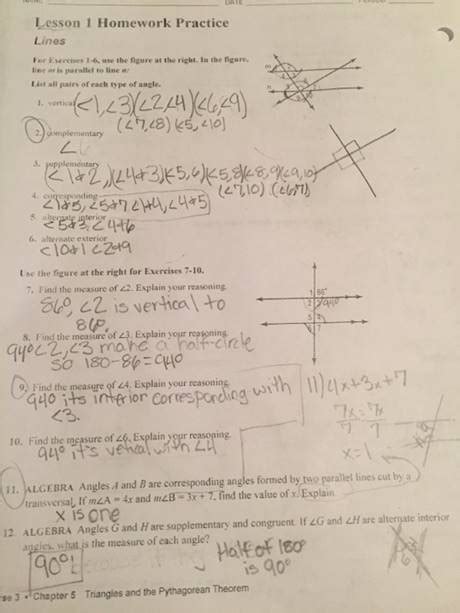 DATE
Lesson 1 Homework Practice
Lines
For Exercises 1-6, use the figure at the right. In the figure,
line m is parallel to line n.
List all pairs of each type of angle.
1. vertical (<1,<3)(<2<4)(<6,<9)
(<7,<8) (<5,<10)
2. complementary
3. supplementary
(<7,10)
4. corresponding
5. alternate interior
<5&3, <4&6
6. alternate exterior
<10&1 <2&9
Use the figure at the right for Exercises 7-10.
7. Find the measure of ∠2. Explain your reasoning.
86°, <2 is vertical to
86°
1 86°
8. Find the measure of ∠3. Explain your reasoning.
94° <2, <3 make a half-circle
so 180-86=94°
9. Find the measure of ∠4. Explain your reasoning.
94° its interior corresponding with
<3.
11) 4x+3x+7
7x=7x
7 7
x=1
10. Find the measure of ∠6. Explain your reasoning.
94° it's vertical with <4
11. ALGEBRA Angles A and B are corresponding angles formed by two parallel lines cut by a
transversal. If m∠A = 4x and m∠B = 3x + 7, find the value of x. Explain.
x is one
12. ALGEBRA Angles G and H are supplementary and congruent. If ∠G and ∠H are alternate interior
angles, what is the measure of each angle?
90°!
Half of 180°
is 90°
se 3 • Chapter 5 Triangles and the Pythagorean Theorem